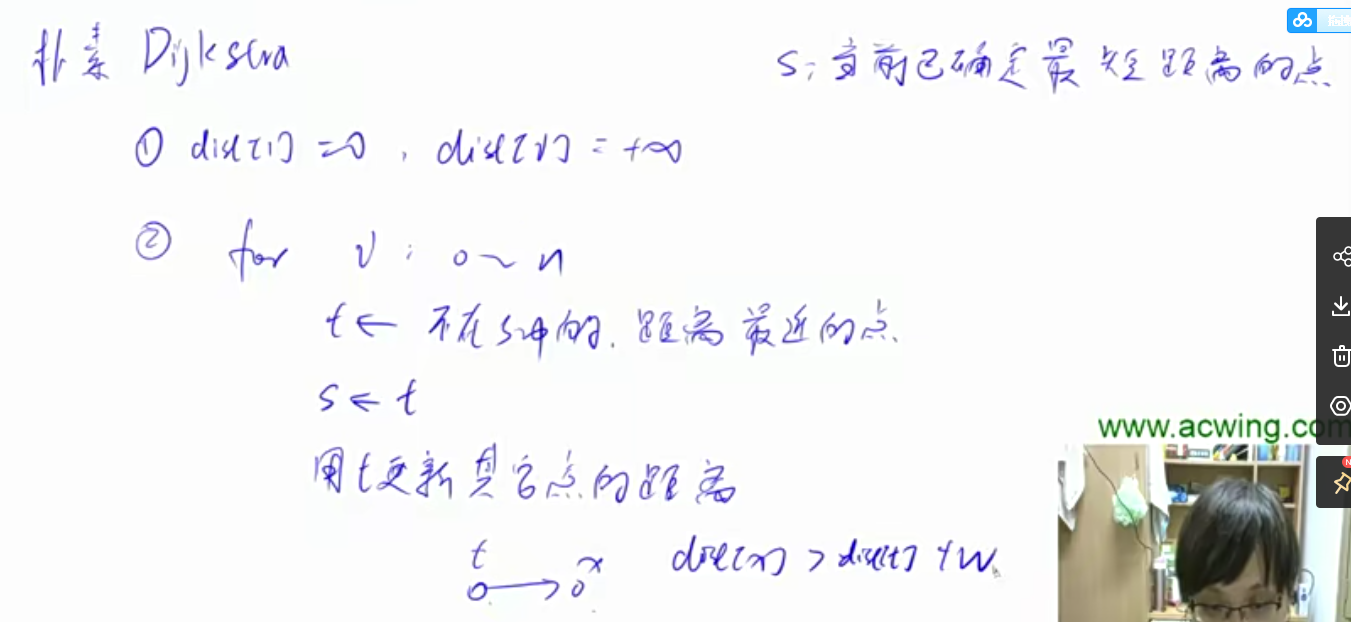 朴素 Dijkstra
s: 当前已确定最短距离的点
① dist[1] = 0, dist[i] = +∞
② for i: 0 ~ n
t ← 不在s中的, 距离最近的点
s ← t
用t更新其它点的距离
t → x dist[x] > dist[t] + w
www.acwing.com